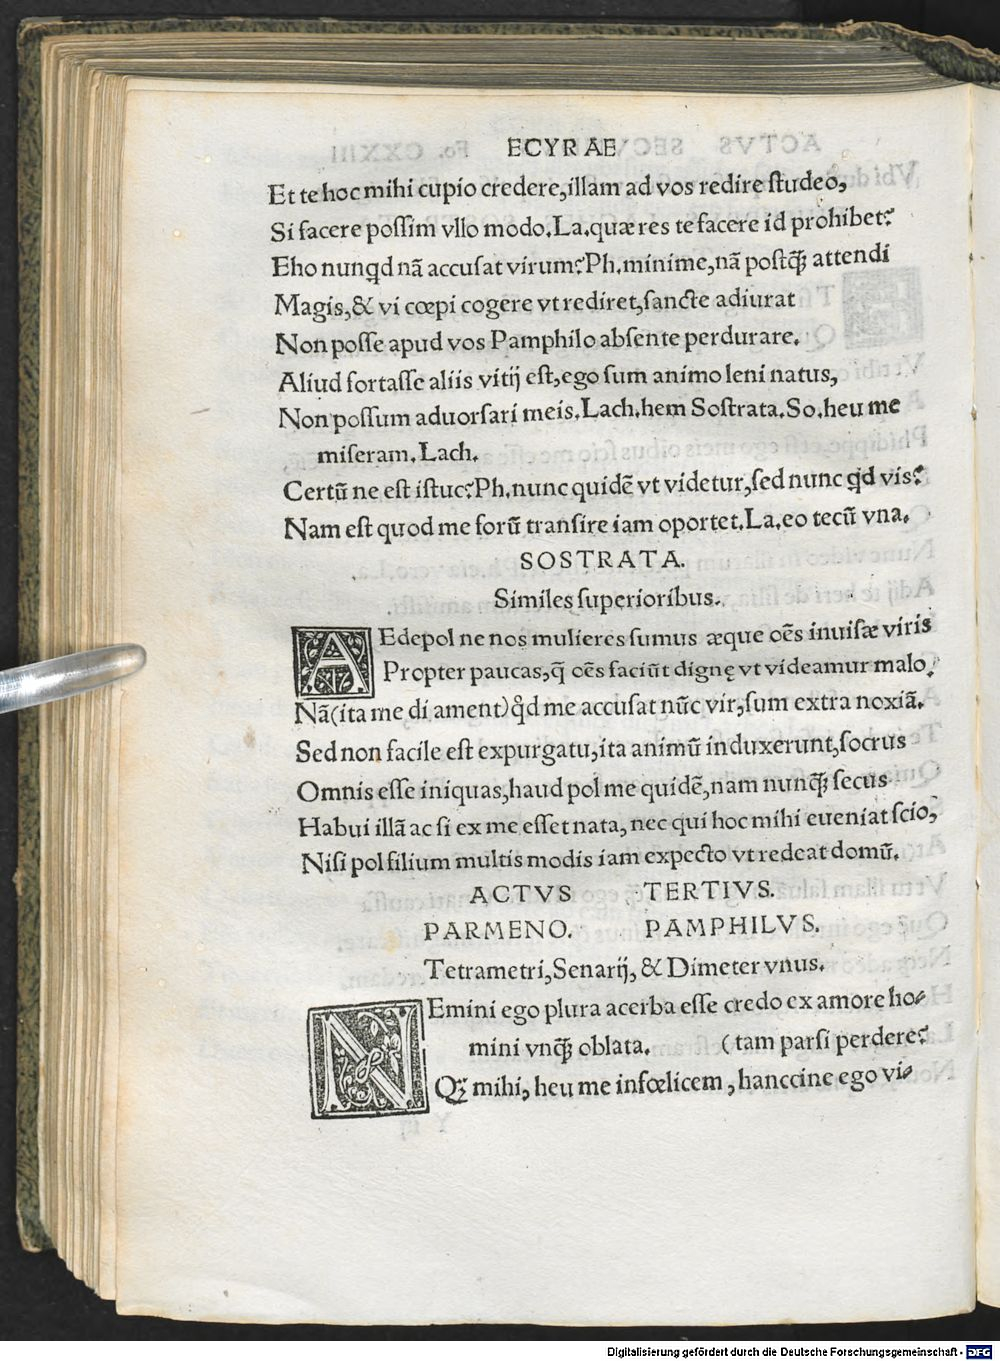 ECYRAE
Et te hoc mihi cupio credere, illam ad vos redire studeo,
Si facere possim vllo modo. La. quæ res te facere id prohibet?
Eho nunqd nã accusat virum? Ph. minime, nã postq̃ attendi
Magis, & vi cœpi cogere vt rediret, sancte adiurat
Non posse apud vos Pamphilo absente perdurare.
Aliud fortasse aliis vitij est, ego sum animo leni natus,
Non possum aduorsari meis. Lach. hem Sostrata. So. heu me
miseram. Lach.
Certũ ne est istuc? Ph. nunc quidẽ vt videtur, sed nunc qd vis?
Nam est quod me forũ transire iam oportet. La. eo tecũ vna.
SOSTRATA.
Similes superioribus.
AEdepol ne nos mulieres sumus æque oẽs inuisæ viris
Propter paucas, q̃ oẽs faciũt dignę vt videamur malo.
Nã (ita me di ament) qd me accusat nũc vir, sum extra noxiã.
Sed non facile est expurgatu, ita animũ induxerunt, socrus
Omnis esse iniquas, haud pol me quidẽ, nam nunq̃ secus
Habui illã ac si ex me esset nata, nec qui hoc mihi eueniat scio,
Nisi pol filium multis modis iam expecto vt redeat domũ.
ACTVS TERTIVS.
PARMENO. PAMPHILVS.
Tetrametri, Senarij, & Dimeter vnus.
NEmini ego plura acerba esse credo ex amore ho-
mini vnq̃ oblata. (tam parsi perdere?
Qꝫ mihi, heu me infœlicem, hanccine ego vi-
Digitalisierung gefördert durch die Deutsche Forschungsgemeinschaft - DFG